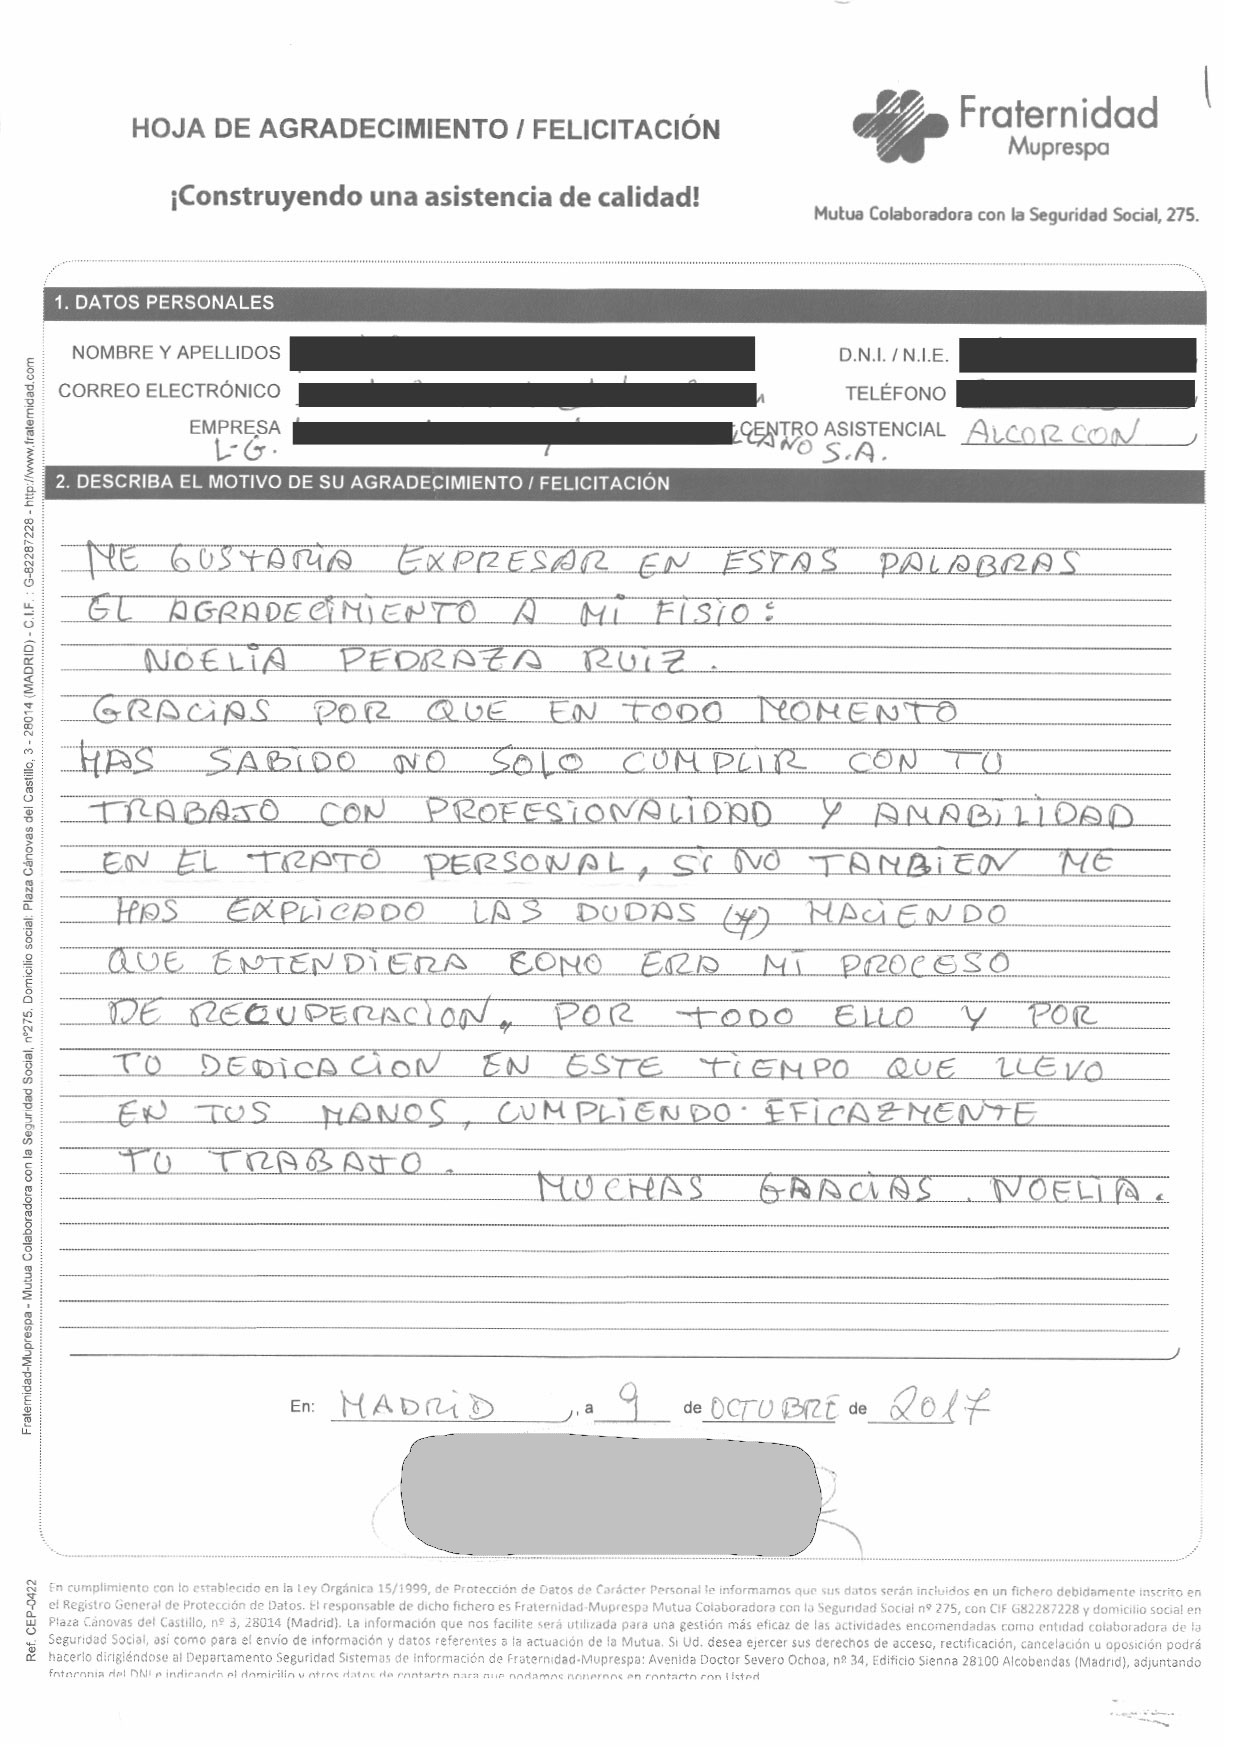 HOJA DE AGRADECIMIENTO / FELICITACIÓN
¡Construyendo una asistencia de calidad!
Fraternidad
Muprespa
Mutua Colaboradora con la Seguridad Social, 275.
1. DATOS PERSONALES
NOMBRE Y APELLIDOS
D.N.I. / N.I.E.
CORREO ELECTRÓNICO
TELÉFONO
EMPRESA
CENTRO ASISTENCIAL ALCORCON
L-G.
S.A.
2. DESCRIBA EL MOTIVO DE SU AGRADECIMIENTO / FELICITACIÓN
ME GUSTARIA EXPRESAR EN ESTAS PALABRAS
EL AGRADECIMIENTO A MI FISIO:
NOELIA PEDRAZA RUIZ.
GRACIAS POR QUE EN TODO MOMENTO
HAS SABIDO NO SOLO CUMPLIR CON TU
TRABAJO CON PROFESIONALIDAD Y AMABILIDAD
EN EL TRATO PERSONAL, SI NO TAMBIEN ME
HAS EXPLICADO LAS DUDAS (Y) HACIENDO
QUE ENTENDIERA COMO ERA MI PROCESO
DE RECUPERACION, POR TODO ELLO Y POR
TU DEDICACION EN ESTE TIEMPO QUE LLEVO
EN TUS MANOS, CUMPLIENDO EFICAZMENTE
TU TRABAJO.
MUCHAS GRACIAS. NOELIA.
En: MADRID, a 9 de OCTUBRE de 2017
En cumplimiento con lo establecido en la Ley Orgánica 15/1999, de Protección de Datos de Carácter Personal le informamos que sus datos serán incluidos en un fichero debidamente inscrito en
el Registro General de Protección de Datos. El responsable de dicho fichero es Fraternidad-Muprespa Mutua Colaboradora con la Seguridad Social nº 275, con CIF G82287228 y domicilio social en
Plaza Cánovas del Castillo, nº 3, 28014 (Madrid). La información que nos facilite será utilizada para una gestión más eficaz de las actividades encomendadas como entidad colaboradora de la
Seguridad Social, así como para el envío de información y datos referentes a la actuación de la Mutua. Si Ud. desea ejercer sus derechos de acceso, rectificación, cancelación u oposición podrá
hacerlo dirigiéndose al Departamento Seguridad Sistemas de Información de Fraternidad-Muprespa: Avenida Doctor Severo Ochoa, nº 34, Edificio Sienna 28100 Alcobendas (Madrid), adjuntando
fotocopia del DNI e indicando el domicilio y otros datos de contacto para que podamos ponernos en contacto con Usted
Fraternidad-Muprespa - Mutua Colaboradora con la Seguridad Social, nº275. Domicilio social: Plaza Cánovas del Castillo, 3 - 28014 (MADRID) - C.I.F. : G-82287228 - http://www.fraternidad.com
Ref. CEP-0422